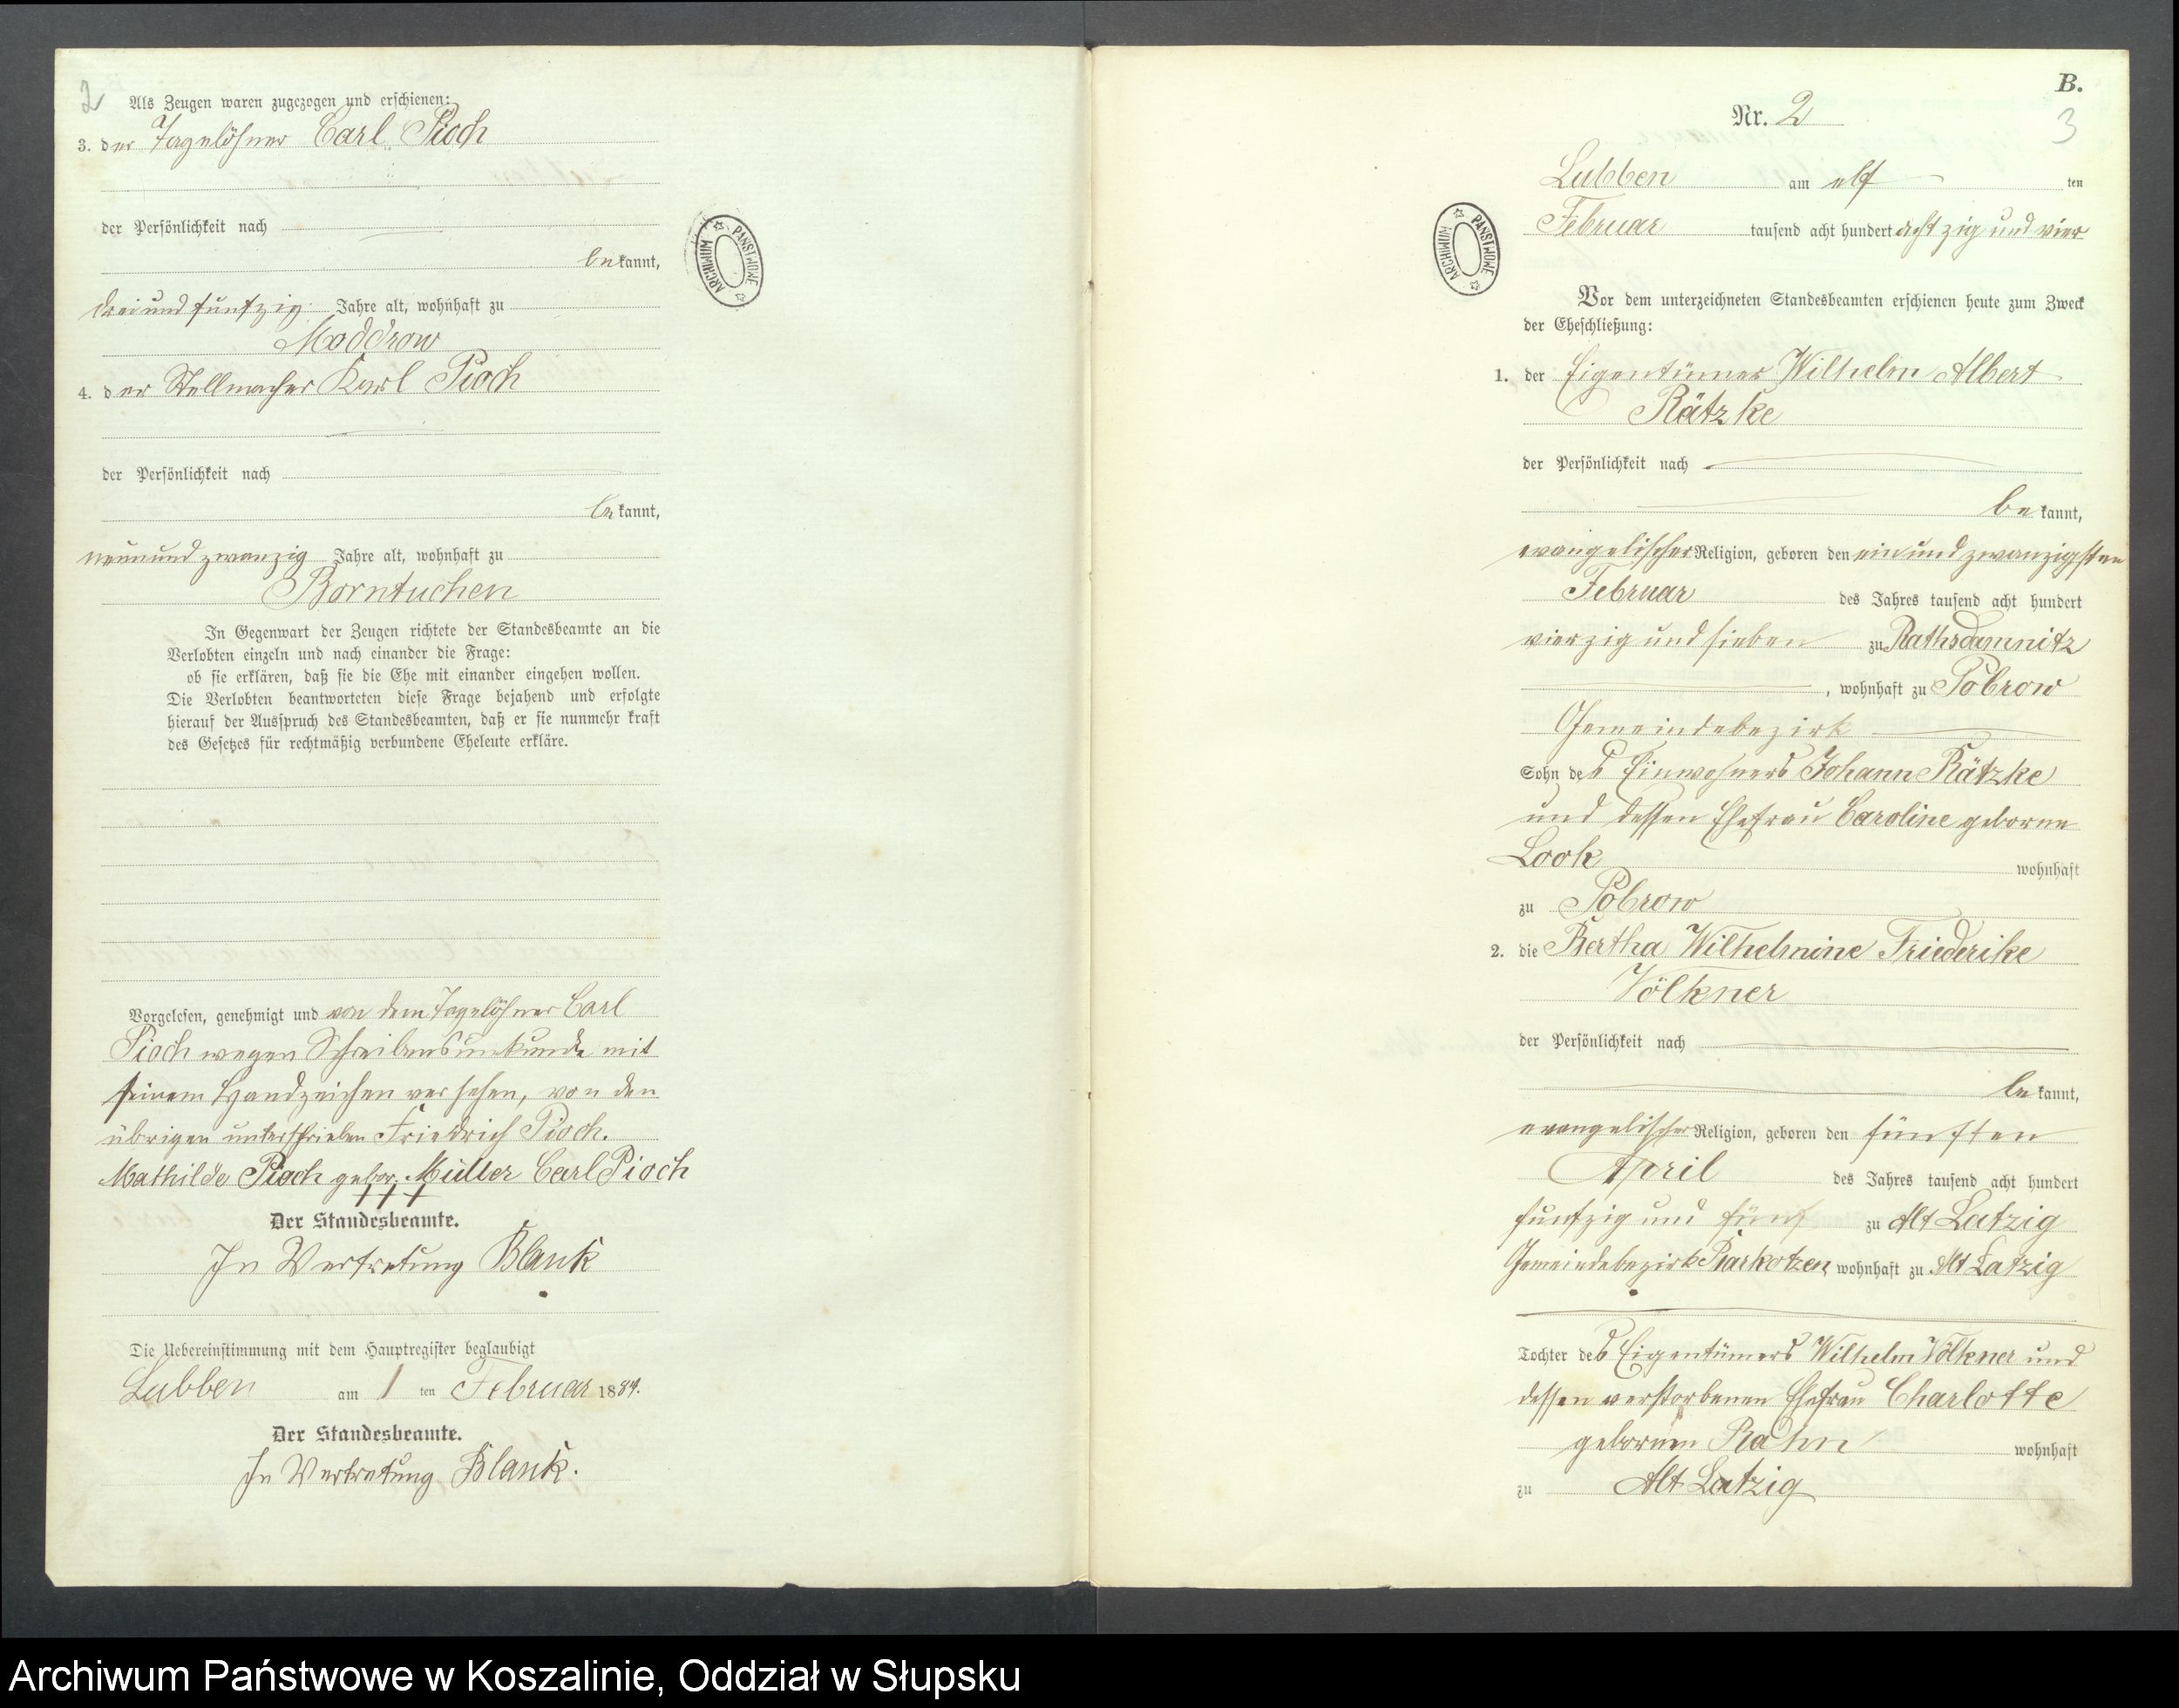 2
Als Zeugen waren zugezogen und erschienen:
3. der Tagelöhner Carl Pioch
der Persönlichkeit nach
be kannt,
drei und funfzig Jahre alt, wohnhaft zu
Moddrow
4. der Stellmacher Karl Pioch
der Persönlichkeit nach
be kannt,
neun und zwanzig Jahre alt, wohnhaft zu
Borntuchen
In Gegenwart der Zeugen richtete der Standesbeamte an die
Verlobten einzeln und nach einander die Frage:
ob sie erklären, daß sie die Ehe mit einander eingehen wollen.
Die Verlobten beantworteten diese Frage bejahend und erfolgte
hierauf der Ausspruch des Standesbeamten, daß er sie nunmehr kraft
des Gesetzes für rechtmäßig verbundene Eheleute erkläre.
Vorgelesen, genehmigt und von dem Tagelöhner Carl
Pioch wegen Schreibensunkunde mit
seinem Handzeichen versehen, von den
übrigen unterschrieben Friedrich Pioch.
Mathilde Pioch gebor. Müller Carl Pioch
+++
Der Standesbeamte.
In Vertretung Blank
Die Uebereinstimmung mit dem Hauptregister beglaubigt
Lubben am 1 ten Februar 1884.
Der Standesbeamte.
In Vertretung Blank.
ARCHIWUM PAŃSTWOWE
B.
Nr. 2
3
Lubben am elf ten
Februar tausend acht hundert acht zig und vier
ARCHIWUM PAŃSTWOWE
Vor dem unterzeichneten Standesbeamten erschienen heute zum Zweck
der Eheschließung:
1. der Eigentümer Wilhelm Albert
Rätzke
der Persönlichkeit nach
be kannt,
evangelischer Religion, geboren den ein und zwanzigsten
Februar des Jahres tausend acht hundert
vierzig und sieben zu Rathsdamnitz
, wohnhaft zu Pobrow
Gemeindebezirk
Sohn des Einwohners Johann Rätzke
und dessen Ehefrau Caroline geborne
Look wohnhaft
zu Pobrow
2. die Bertha Wilhelmine Friederike
Völkner
der Persönlichkeit nach
be kannt,
evangelischer Religion, geboren den fünften
April des Jahres tausend acht hundert
funfzig und fünf zu Alt Latzig
Gemeindebezirk Barkotzen, wohnhaft zu Alt Latzig
Tochter des Eigentümers Wilhelm Völkner und
dessen verstorbenen Ehefrau Charlotte
gebornen Rahn wohnhaft
zu Alt Latzig
Archiwum Państwowe w Koszalinie, Oddział w Słupsku